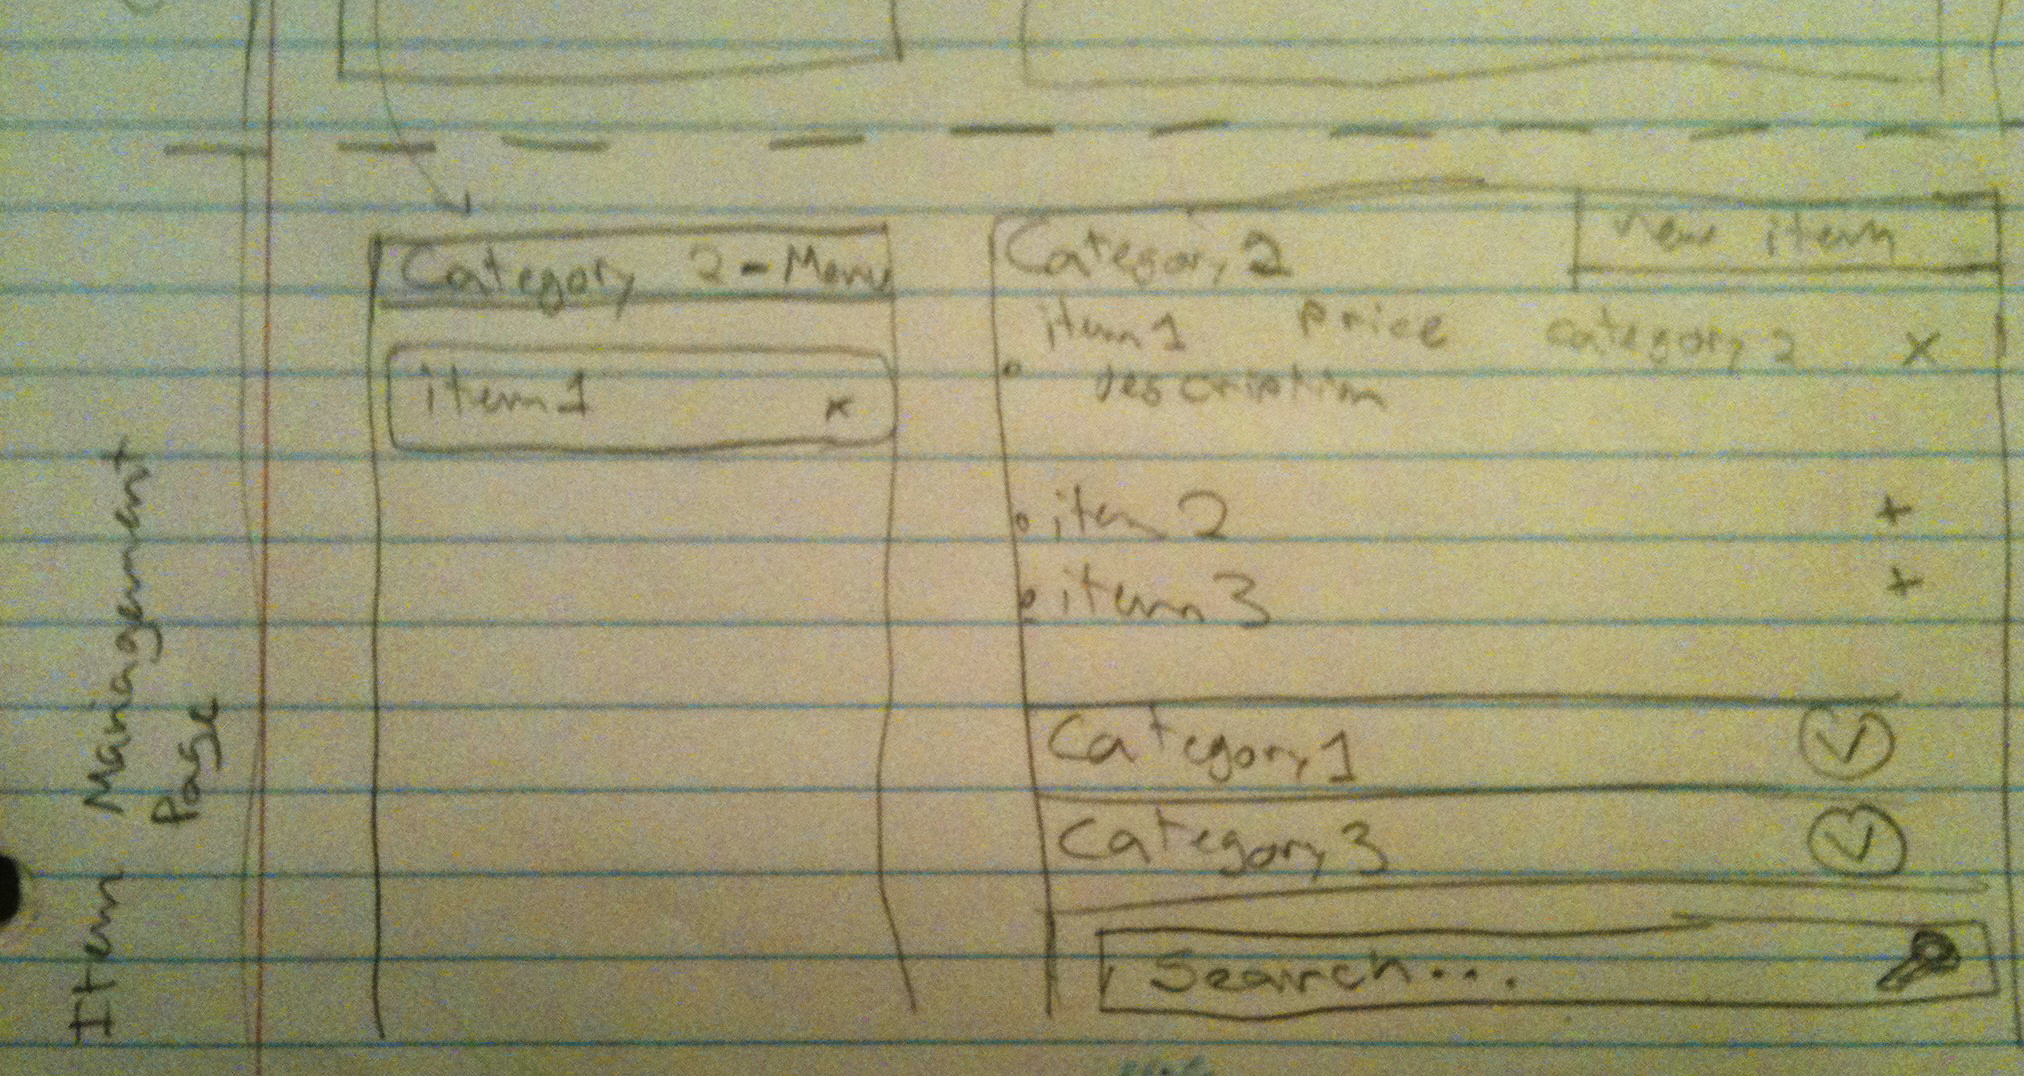 Item Management
Page
Category 2 - Menu
item1 x
Category 2
new item
item1 Price category 2 x
description
item 2 +
item 3 +
Category 1
Category 3
Search...